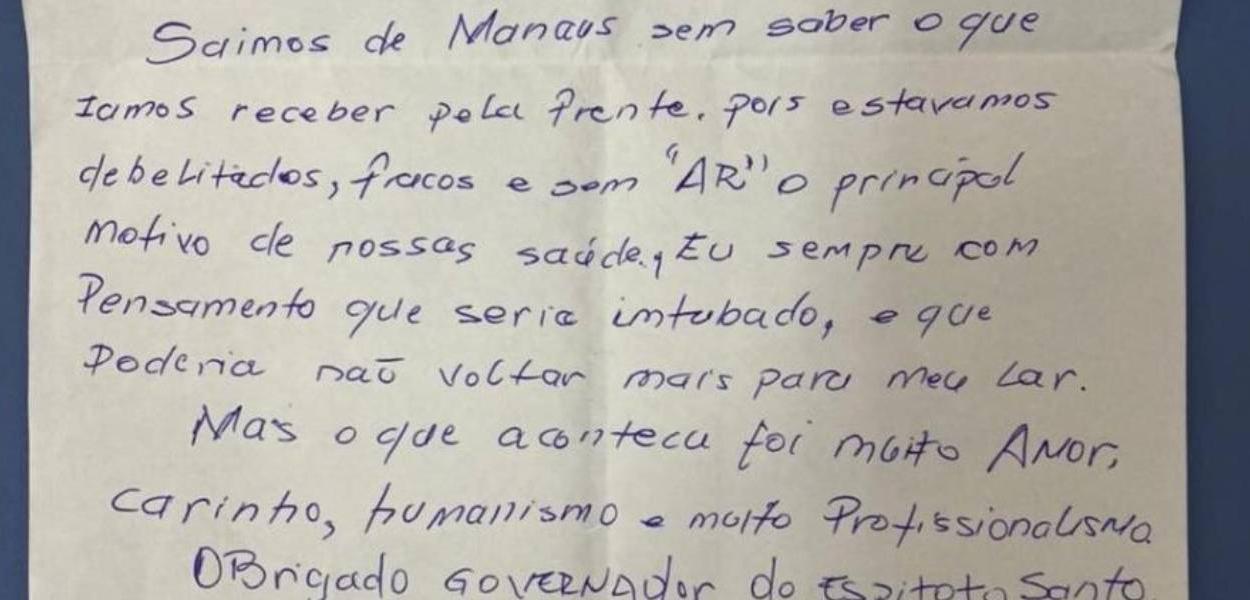 Saimos de Manaus sem saber o que
Iamos receber pela frente. pois estavamos
debelitados, fracos e sem "AR" o principal
motivo de nossas saúde., Eu sempre com
Pensamento que seria imtubado, e que
Poderia naõ voltar mais para meu Lar.
Mas o que aconteceu foi muito AMor,
carinho, humanismo e muito ProfissionalisMo
OBrigado GOVERNADor do Espitoto Santo.